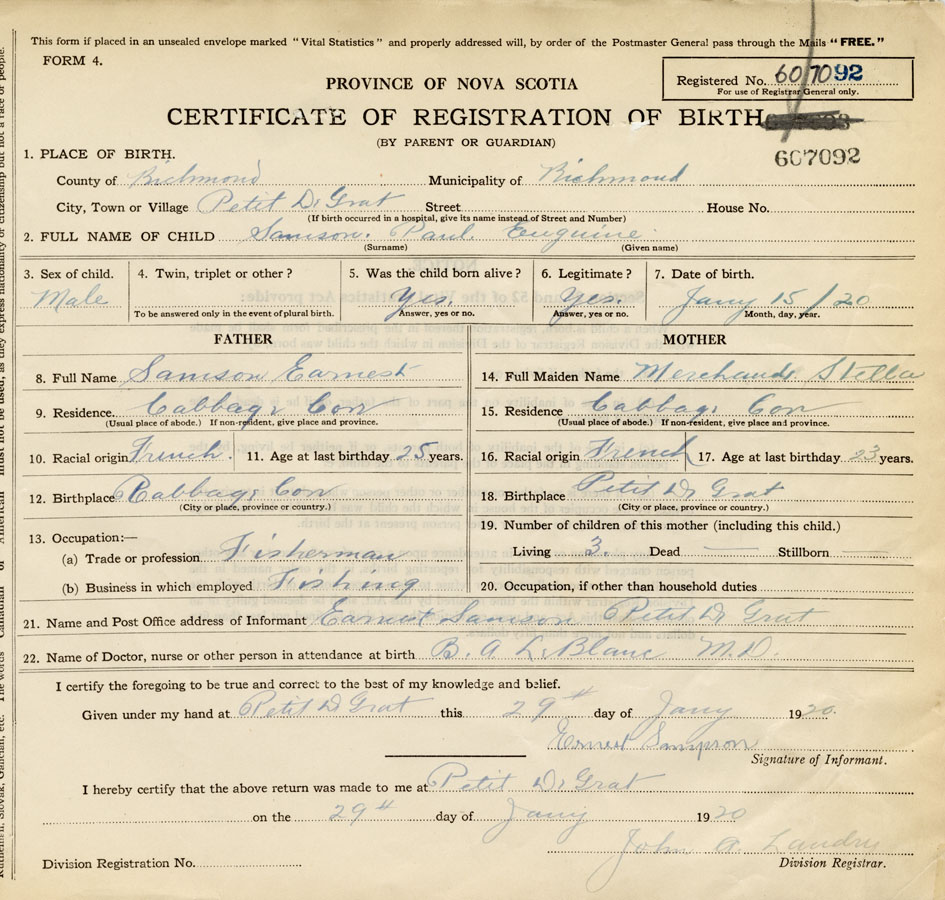 This form if placed in an unsealed envelope marked "Vital Statistics" and properly addressed will, by order of the Postmaster General pass through the Mails "FREE."
FORM 4.
PROVINCE OF NOVA SCOTIA
Registered No. 607092
For use of Registrar General only.
CERTIFICATE OF REGISTRATION OF BIRTH
(BY PARENT OR GUARDIAN)
607092
1. PLACE OF BIRTH.
County of Richmond Municipality of Richmond
City, Town or Village Petit D. Grat Street House No.
(If birth occurred in a hospital, give its name instead of Street and Number)
2. FULL NAME OF CHILD Samson. Paul. Euguine.
(Surname) (Given name)
3. Sex of child. 4. Twin, triplet or other? 5. Was the child born alive? 6. Legitimate? 7. Date of birth.
Male Yes. Yes. Jany 15/20
To be answered only in the event of plural birth. Answer, yes or no. Answer, yes or no. Month, day, year.
FATHER MOTHER
8. Full Name Samson Earnest
14. Full Maiden Name Merchand Stella
9. Residence. Cabbage Cov
(Usual place of abode.) If non-resident, give place and province.
15. Residence Cabbage Cov
(Usual place of abode.) If non-resident, give place and province.
10. Racial origin French. 11. Age at last birthday 25 years.
16. Racial origin French 17. Age at last birthday 23 years.
12. Birthplace Cabbage Cov
(City or place, province or country.)
18. Birthplace Petit D. Grat
(City or place, province or country.)
13. Occupation:—
19. Number of children of this mother (including this child.)
(a) Trade or profession Fisherman
Living 3. Dead — Stillborn —
(b) Business in which employed Fishing
20. Occupation, if other than household duties
21. Name and Post Office address of Informant Earnest Samson Petit D. Grat
22. Name of Doctor, nurse or other person in attendance at birth B. A. LeBlanc M.D.
I certify the foregoing to be true and correct to the best of my knowledge and belief.
Given under my hand at Petit D. Grat this 29th day of Jany 1920.
Ernest Sampson
Signature of Informant.
I hereby certify that the above return was made to me at Petit D. Grat
on the 29th day of Jany 1920
John A Landry
Division Registration No. Division Registrar.